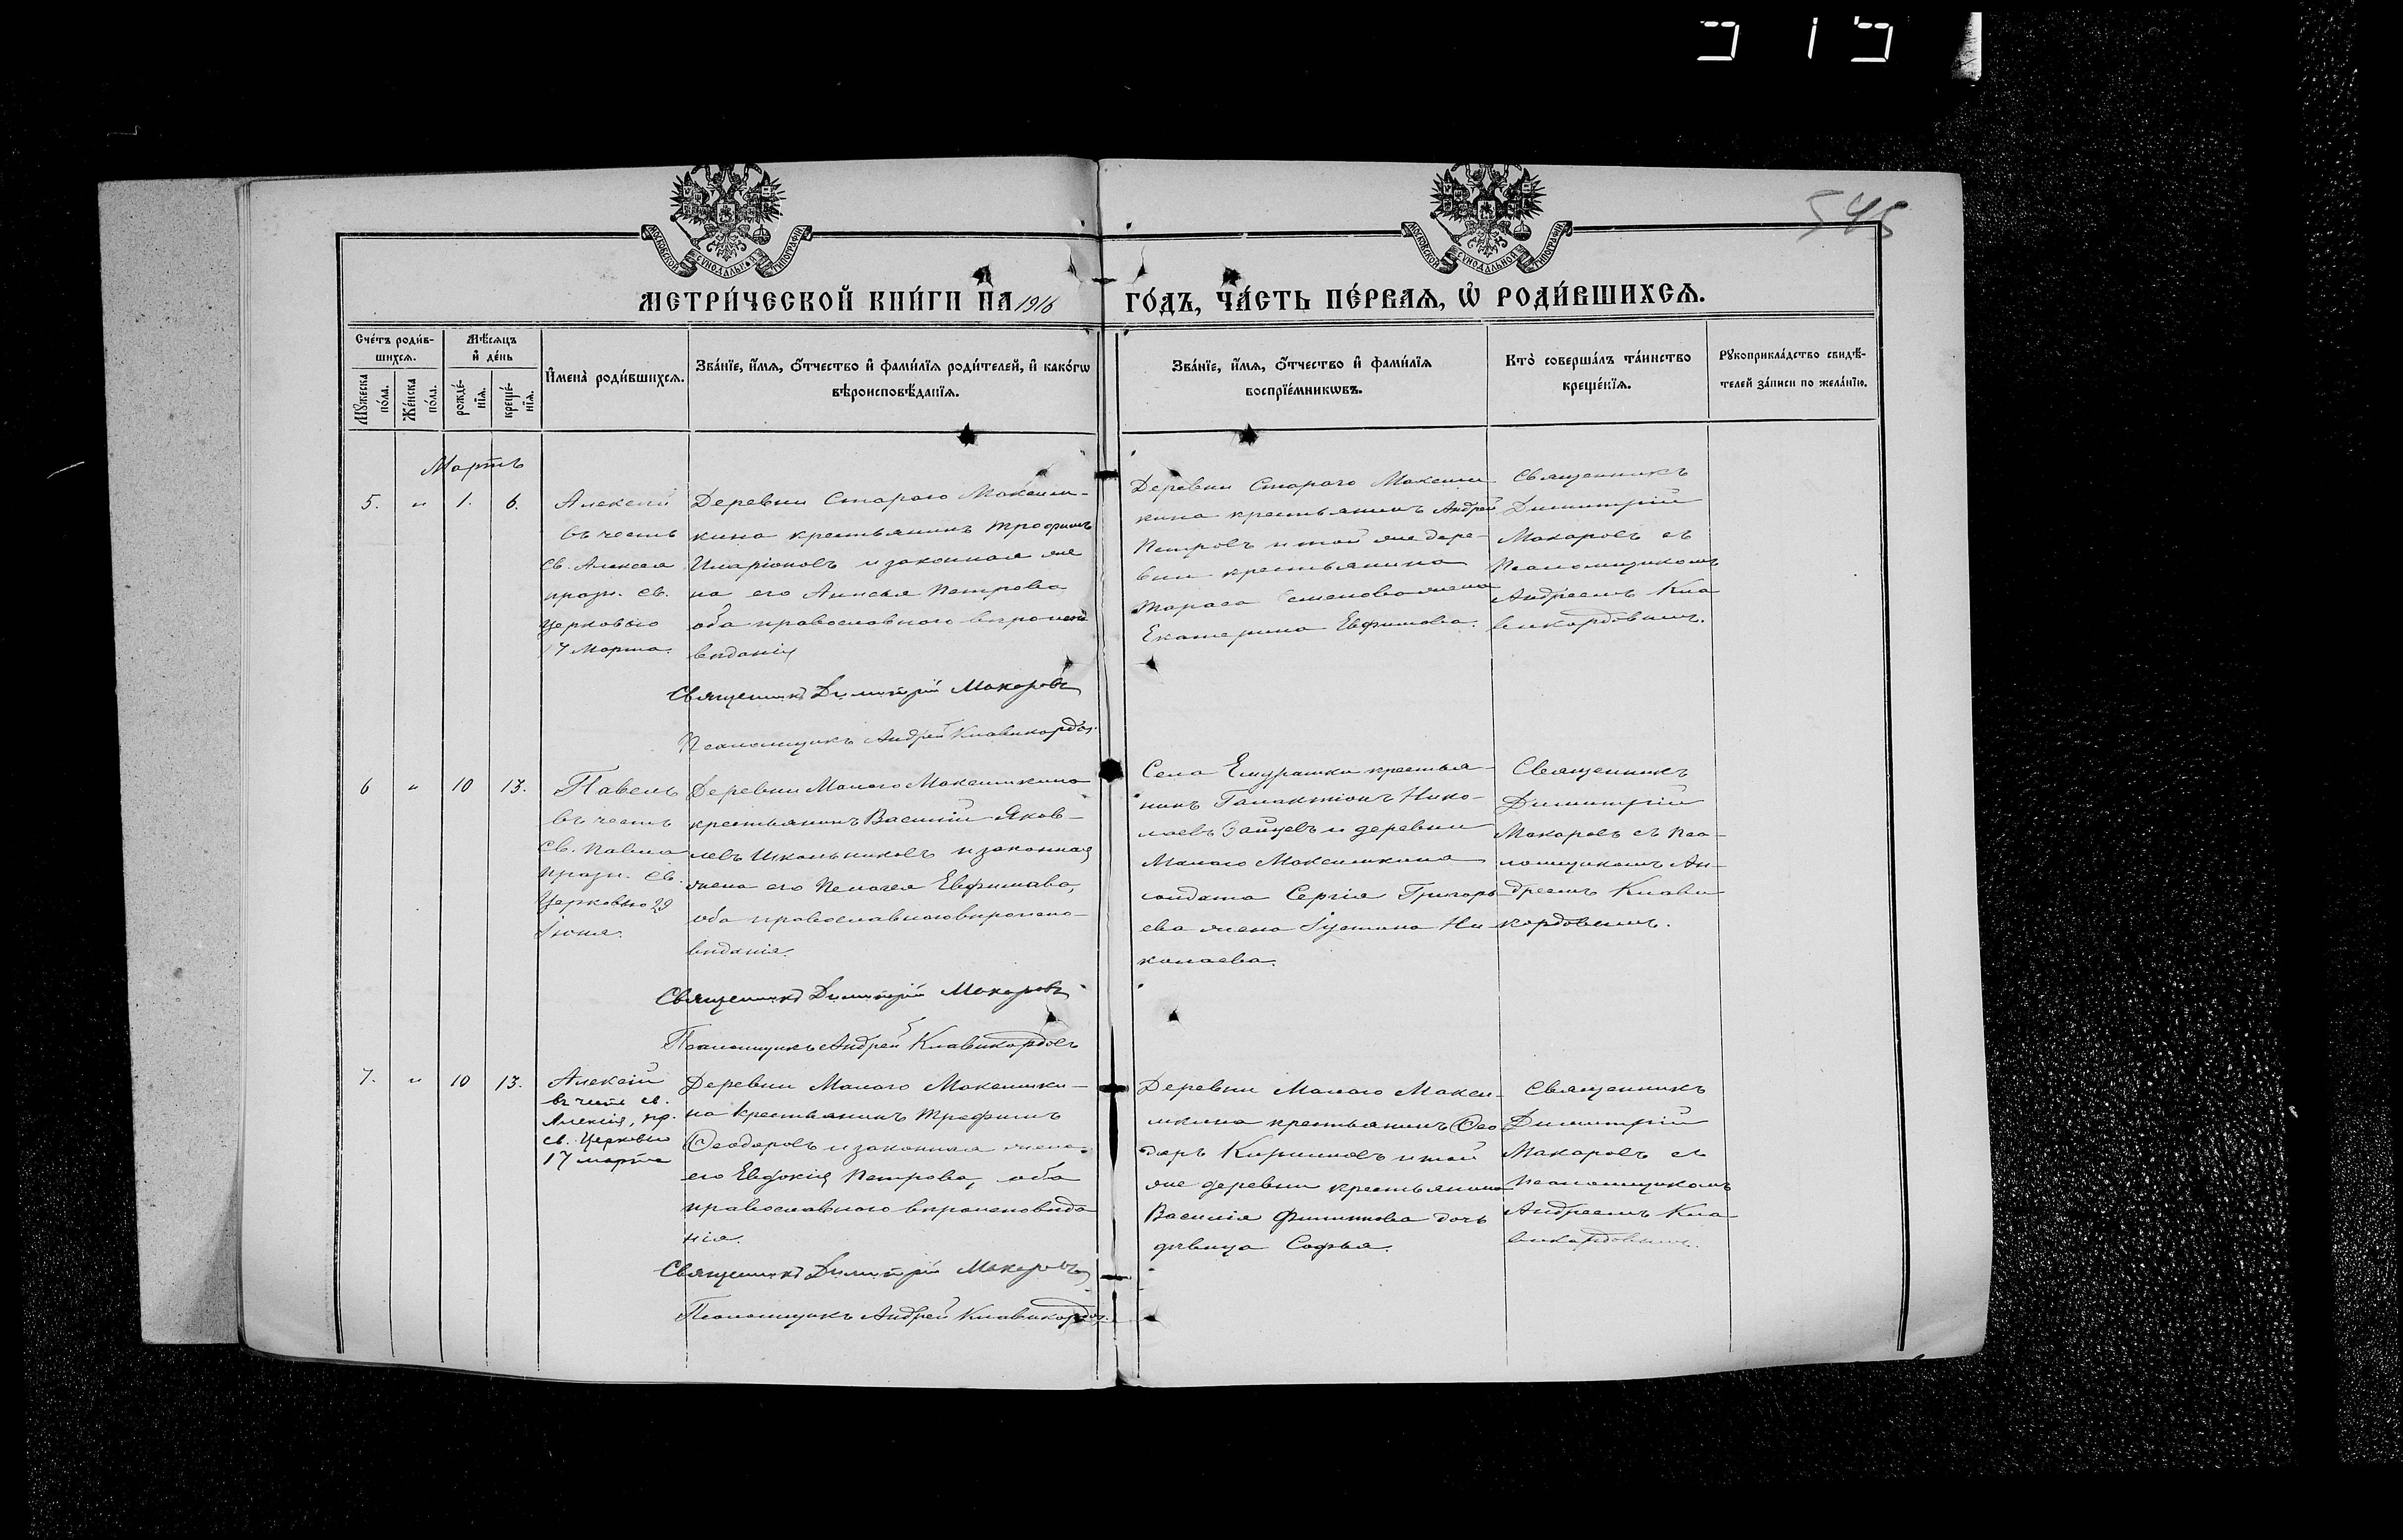 545
МОСКОВСКОЙ СѴНОДАЛЬНОЙ ТИПОГРАФІИ
МОСКОВСКОЙ СѴНОДАЛЬНОЙ ТИПОГРАФІИ
МЕТРИ́ЧЕСКОЙ КНИ́ГИ НА 1916 ГО́ДЪ, ЧА́СТЬ ПЕ́РВАѦ, Ѡ҆ РОДИ́ВШИХСѦ.
Сче́тъ роди́в-
шихсѧ.
Мѹ́жеска
по́ла.
Же́нска
по́ла.
Мѣ́сѧцъ
и҆ де́нь
рожде́-
нїѧ.
креще́-
нїѧ.
И҆мена̀ роди́вшихсѧ.
Зва́нїе, и҆́мѧ, ѻ҆́тчество и҆ фамі́лїѧ роди́телей, и҆ како́гѡ
вѣроисповѣ́данїѧ.
Зва́нїе, и҆́мѧ, ѻ҆́тчество и҆ фамі́лїѧ
воспрїе́мникѡвъ.
Кто̀ соверша́лъ та́инство
креще́нїѧ.
Рѹкоприкла́дство свидѣ́-
телей за́писи по жела́нїю.
Мартъ
5. " 1. 6.
Алексій
въ честь
св. Алексея
празн. св.
церковью
17 Марта.
Деревни Стараго Максим-
кина крестьянинъ Трофимъ
Иларіоновъ и законная же
на его Анисья Петрова
оба православнаго вѣроиспо
вѣданія
Священникъ Димитрій Макаровъ
Псаломщикъ Андрей Клавикордовъ.
Деревни Стараго Максим
кина крестьянинъ Андрей
Петровъ и той же дере-
вни крестьянина
Тараса Семенова жена
Екатерина Евфимова.
Священникъ
Димитрій
Макаровъ съ
Псаломщикомъ
Андреемъ Кла
викордовымъ.
6 " 10 13.
Павелъ
въ честь
св. Павла
празн. св.
Церковью 29
Іюня.
Деревни Малаго Максимкина
крестьянинъ Василій Яков-
левъ Школьниковъ и законная
жена его Пелагея Евфимава,
оба православнаго вѣроиспо-
вѣданія.
Священникъ Димитрій Макаровъ
Псаломщикъ Андрей Клавикордовъ
Села Емурашки крестья-
нинъ Галактіонъ Нико-
лаевъ Зайцевъ и деревни
Малаго Максимкина
солдата Сергія Григорь
ева жена Іустина Ни
колаева.
Священникъ
Димитрій
Макаровъ съ Пса-
ломщикомъ Ан-
дреемъ Клави
кордовымъ.
7. " 10 13.
Алексій
въ честь св.
Алексія, пр.
св. Церковью
17 марта
Деревни Малаго Максимки-
на крестьянинъ Трофимъ
Ѳеодоровъ и законная жена
его Евдокія Петрова, оба
православнаго вѣроисповѣда
нія.
Священникъ Димитрій Макаровъ
Псаломщикъ Андрей Клавикордовъ.
Деревни Малаго Макси-
мкина крестьянинъ Ѳео
доръ Кириловъ и той
же деревни крестьянина
Василія Филиппова дочь
дѣвица Софья.
Священникъ
Димитрій
Макаровъ съ
Псаломщикомъ
Андреемъ Кла
викордовымъ.